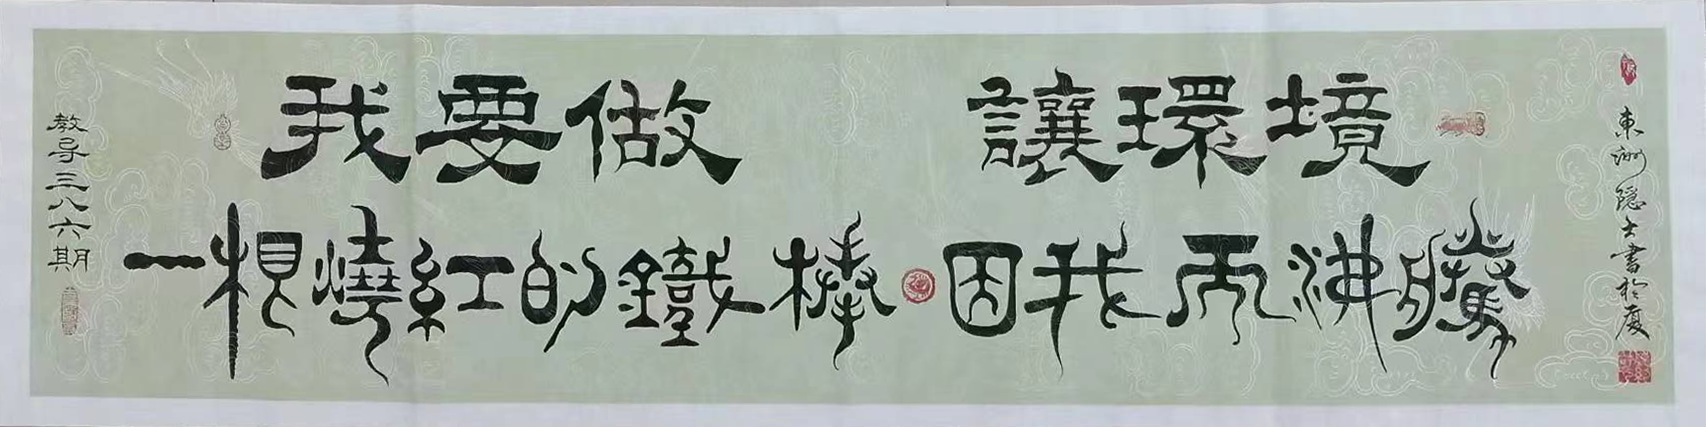 我要做
一根燒紅的鐵棒
讓環境
因我而沸騰
教导三八六期
東洲隱士書於廈